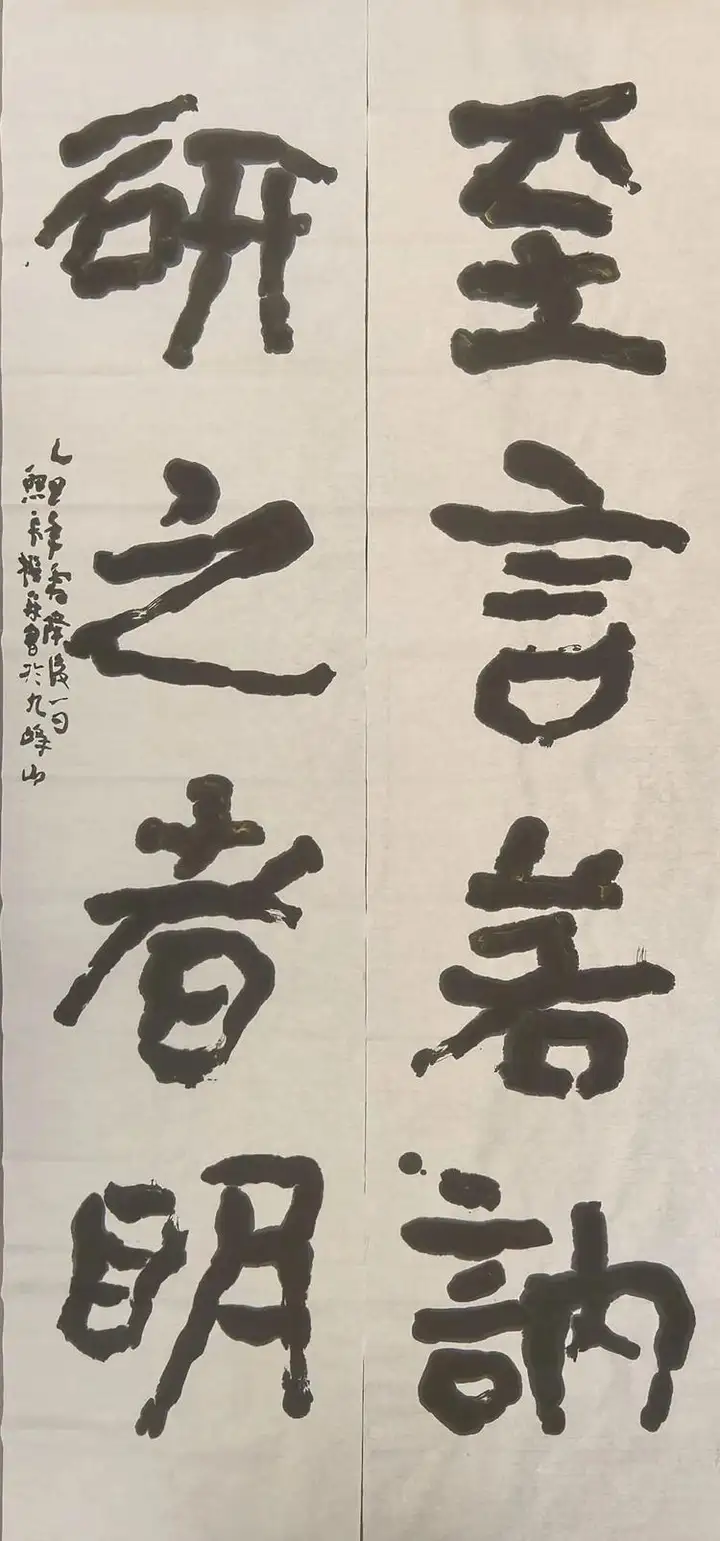 至言若訥
研之者明
乙巳年霜降後一旬
於九峰山